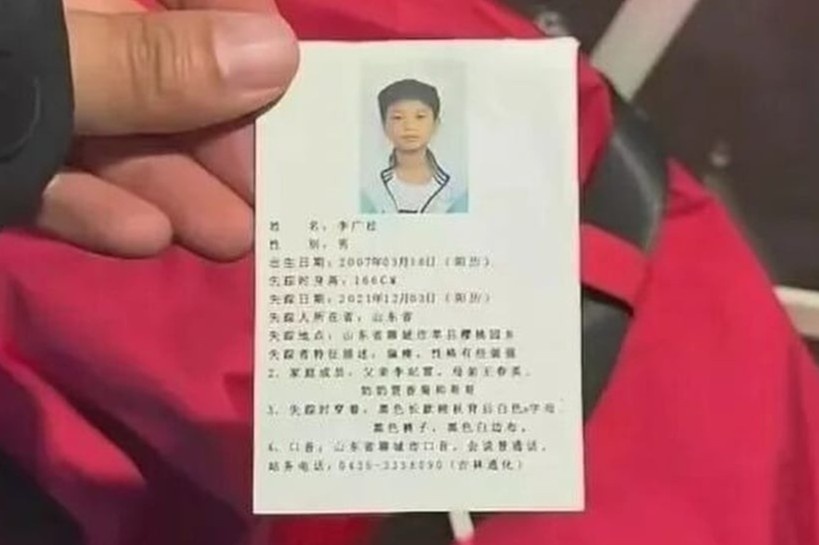 姓 名：李广
性 别：男
出生日期：2007年03月18日（阳历）
失踪时身高：166CM
失踪日期：2021年12月03日（阳历）
失踪人所在省：山东省
失踪地点：山东省聊城市莘县樱桃园乡
失踪者特征描述：偏瘦，性格有些倔强
2、家庭成员：父亲李 ，母亲王春英，
奶奶 香菊和哥哥
3、失踪时穿着：黑色长款棉袄背后白色 字母，
黑色裤子，黑色白边布，
4、口音：山东省聊城市口音，会说普通话，
站务电话：0435-3338090（吉林通化）